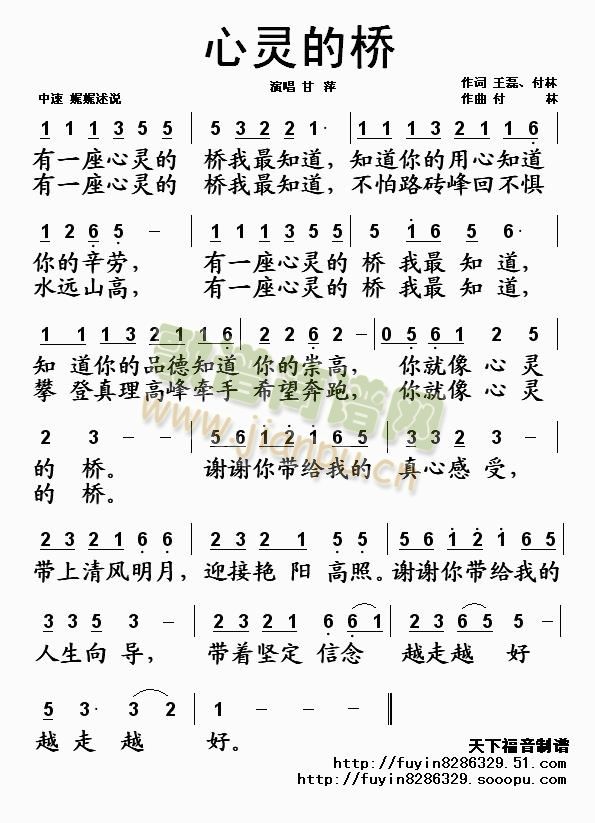 心灵的桥
演唱 甘 萍
作词 王磊、付林
中速 娓娓述说
作曲 付 林
1 1 1 3 5 5 | 5 3 2 2 1 · | 1 1 1 3 2 1 1 6 |
有一座心灵的 桥我最知道, 知道你的用心知道
有一座心灵的 桥我最知道, 不怕路砖峰回不惧
1 2 6 5 - | 1 1 1 3 5 5 | 5 1 6 5 6 · |
你的辛劳, 有一座心灵的 桥 我最 知 道,
水远山高, 有一座心灵的 桥 我最 知 道,
1 1 1 3 2 1 1 6 | 2 2 6 2 - | 0 5 6 1 2 5 |
知 道你的品德知道 你的崇高, 你就像 心 灵
攀 登真理高峰牵手 希望奔跑, 你就像 心 灵
歌谱简谱网
www.jianpu.cn
2 3 - - | 5 6 1 2 1 6 5 | 3 3 2 3 - |
的 桥。 谢谢你带给我的 真心感 受,
的 桥。
2 3 2 1 6 6 | 2 3 2 1 5 5 | 5 6 1 2 1 6 5 |
带上清风明月, 迎接艳 阳 高照。谢谢你带给我的
3 3 5 3 - | 2 3 2 1 6 6 1 | 2 3 6 5 5 |
人生向 导, 带着坚定 信念 越走越 好
5 3 · 3 2 | 1 - - - |
越 走 越 好。
天下福音制谱
http://fuyin8286329.51.com/
http://fuyin8286329.sooopu.com/